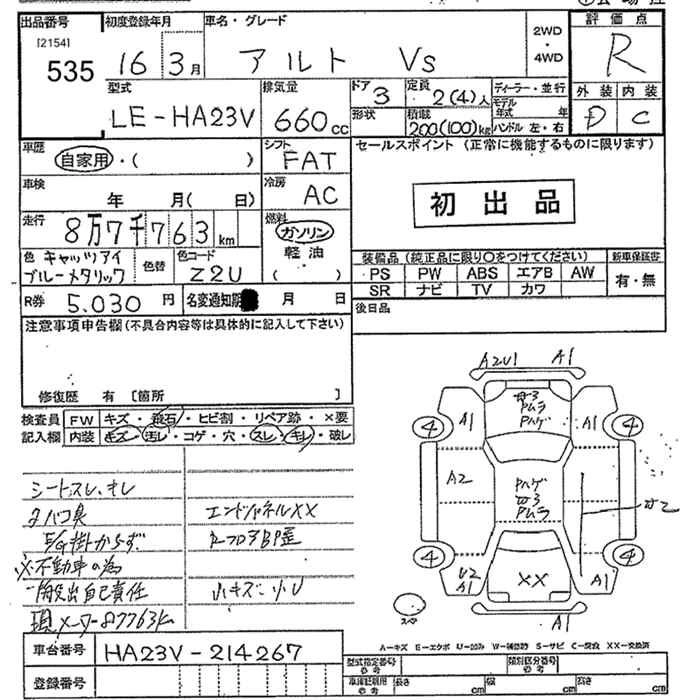 出品番号 初度登録年月 車名・グレード 2WD・4WD 評価点
[2154]
535 16 3月 アルト Vs R
型式 排気量 ドア 定員 ディーラー・並行 外装 内装
LE-HA23V 660cc 3 2(4)人 モデル年式 年
形状 積載 200(100)kg ハンドル 左・右 D C
車歴 自家用・( ) シフト FAT セールスポイント (正常に機能するものに限ります)
車検 年 月( 日) 冷房 AC
初出品
走行 8万7千763km 燃料 ガソリン
軽油
( )
色 キャッツアイ 色替 色コード
ブルーメタリック Z2U
装備品 (純正品に限り○をつけてください) 新車保証書
PS PW ABS エアB AW 有・無
SR ナビ TV カワ
R券 5.030円 名変通知期 月 日 後日品
注意事項申告欄 (不具合内容等は具体的に記入して下さい)
修復歴 有 [箇所 ]
検査員 FW キズ・飛石・ヒビ割・リペア跡・×要
記入欄 内装 キズ・汚レ・コゲ・穴・スレ・キレ・破レ
シートスレ、キレ
タバコ臭 エンドパネルXX
E/G掛からず RフロアBP歪
※不動車の為
一般出自己責任 小キズ 小U
現メーター87763km
A2U1 A1
A1 A1
4 4
A2
PハゲPムラ
4 4
U2
A1 XX A1
A1
A-キズ E-エクボ U-凹み W-補修跡 S-サビ C-腐食 XX-交換済
車台番号 HA23V-214267
登録番号
型式指定番号 類別区分番号
車庫証明用 長さ cm 幅 cm 高さ cm